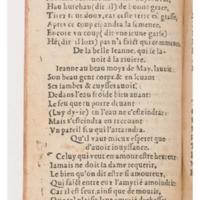 Hau hurehau(dit il) de bonne grace,
Tirez tout doux, car ceste terre est grasse,
Apres ce coup espandra la semence,
Encore vn coup (dit vne ieune garse)
Hé, dit il lors) pas n'a faict que commence.
De la belle Ieanne, qui se la-
uoit à la riuiere.
Ieanne au beau moys de May, lauoit
Son beau gent corps, & en lauant
Ses iambes & cuysses auoit
Dedans l'eau froide bien auant
Le feu que tu porte deuant
(Luy dy-ie) en l'eau ne s'esteindra
Mais s'esteindra en recreuant
Vn pareil feu qui l'attaindra.
Qu'il vaut mieux esperer que
d'auoir iouyssance.
Celuy qui veut en amour estre heureux
Iamais ne doit sa dame requerir,
Le bien qu'on dit estre d'amoureux,
Qui faict entre eux l'amytié amoindrir:
Car il est seur, ainsi que de mourir,